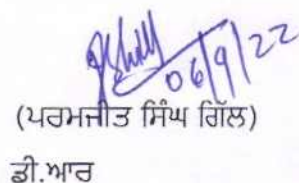 06/9/22
(ਪਰਮਜੀਤ ਸਿੰਘ ਗਿੱਲ)
ਡੀ.ਆਰ